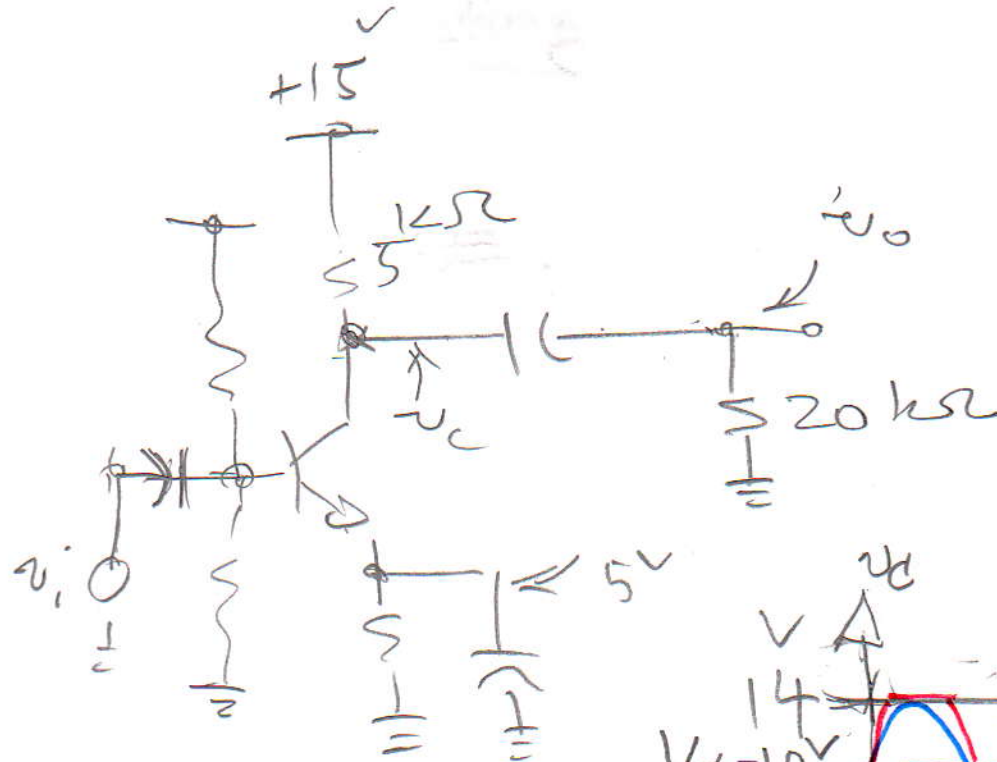 +15 V
5 kΩ
v_o
v_c
20 kΩ
v_i
5 V
v_c
V
14